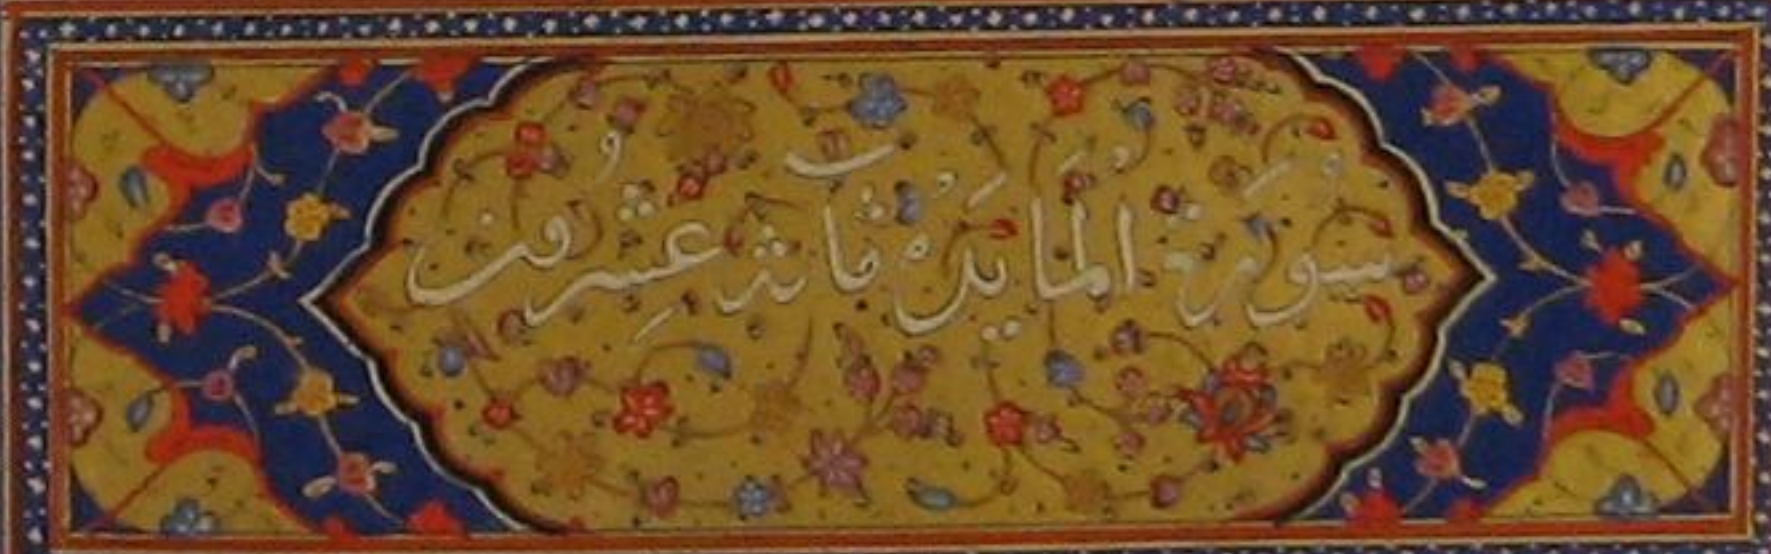 سُورَةُ المَايدَةُ مائة عِشرُون